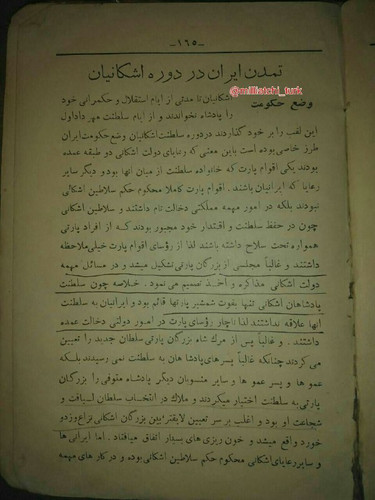 -١٦٥-
تمدن ایران در دوره اشکانیان
@milliatchi_turk
وضع حکومت
اشکانیان تا مدتی از ایام استقلال و حکمرانی خود
را پادشاه نخواندند و از ایام سلطنت مهرداد اول
این لقب را بر خود گذاردند در دوره سلطنت اشکانیان وضع حکومت ایران
طرز خاصی بوده است باین معنی که رعایای دولت اشکانی دو طبقه عمده
بودند یکی اقوام پارت که خانواده سلطنت از میان آنها بود و دیگر سایر
رعایا که ایرانیان باشند . اقوام پارت کاملا محکوم حکم سلاطین اشکانی
نبودند بلکه در امور مهمه مملکتی دخالت تام داشتند و سلاطین اشکانی
چون در حفظ سلطنت و اقتدار خود مجبور بودند که از افراد پارتی
همواره تحت سلاح داشته باشند لذا از رؤسای اقوام پارت خیلی ملاحظه
داشتند و غالباً مجلسی از بزرگان پارتی تشکیل میشد و در مسائل مهمه
دولت اشکانی مذاکره و اخذ تصمیم می نمود . خلاصه چون سلطنت
پادشاهان اشکانی تنها بقوت شمشیر پارتها قائم بود و ایرانیان به سلطنت
آنها علاقه نداشتند لذا ناچار رؤسای پارت در امور دولتی دخالت عمده
داشتند . و غالباً پس از مرگ شاه بزرگان پارتی سلطان جدید را تعیین
می کردند چنانکه غالباً پسر های پادشاهان به سلطنت نمی رسیدند بلکه
عمو ها و پسر عمو ها و سایر منسوبان دیگر پادشاه متوفی را بزرگان
پارتی به سلطنت اختیار میکردند و ملاك در انتخاب سلطان لیاقت و
شجاعت او بود و اغلب بر سر تعیین لایقتر بین بزرگان اشکانی نزاع و زدو
خورد واقع میشد و خون ریزی های بسیار اتفاق میافتاد . اما ایرانی ها
و سایر رعایای اشکانی محکوم حکم سلاطین اشکانی بوده و در کار های مهمه